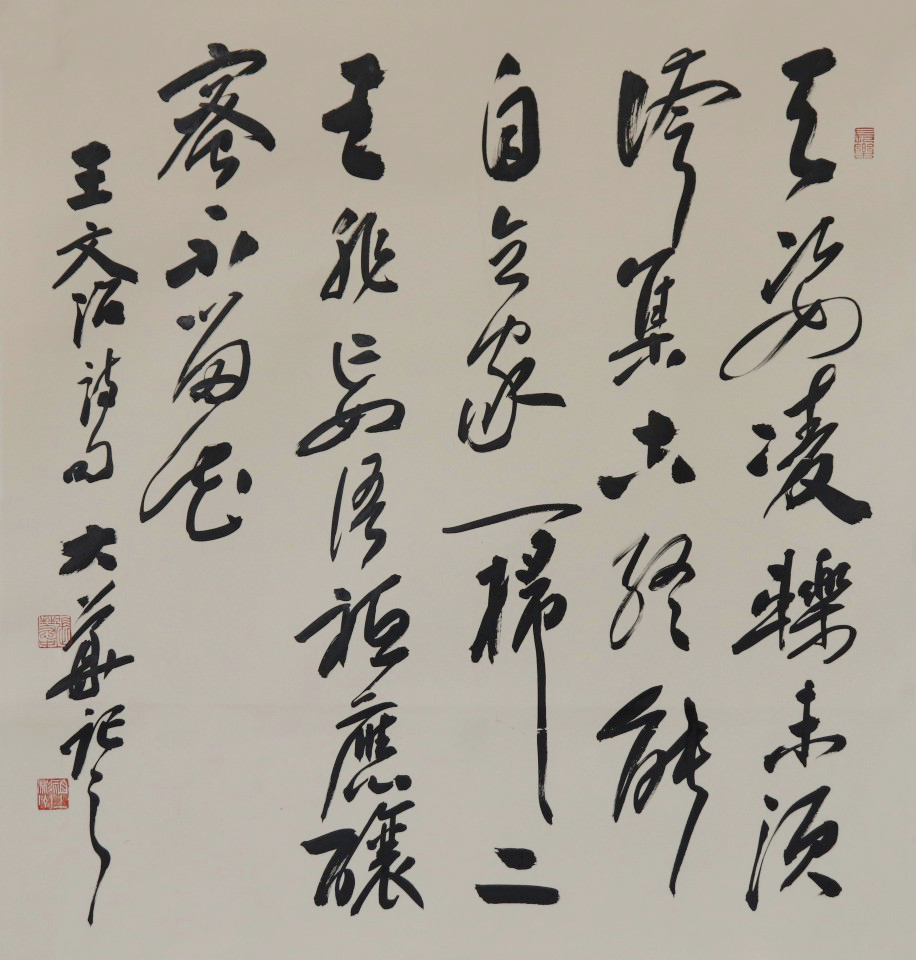 天姿凌轢未須
誇集古終能
自立家一掃二
王非妄語祗應釀
蜜不留花
王文治詩句 大華記之